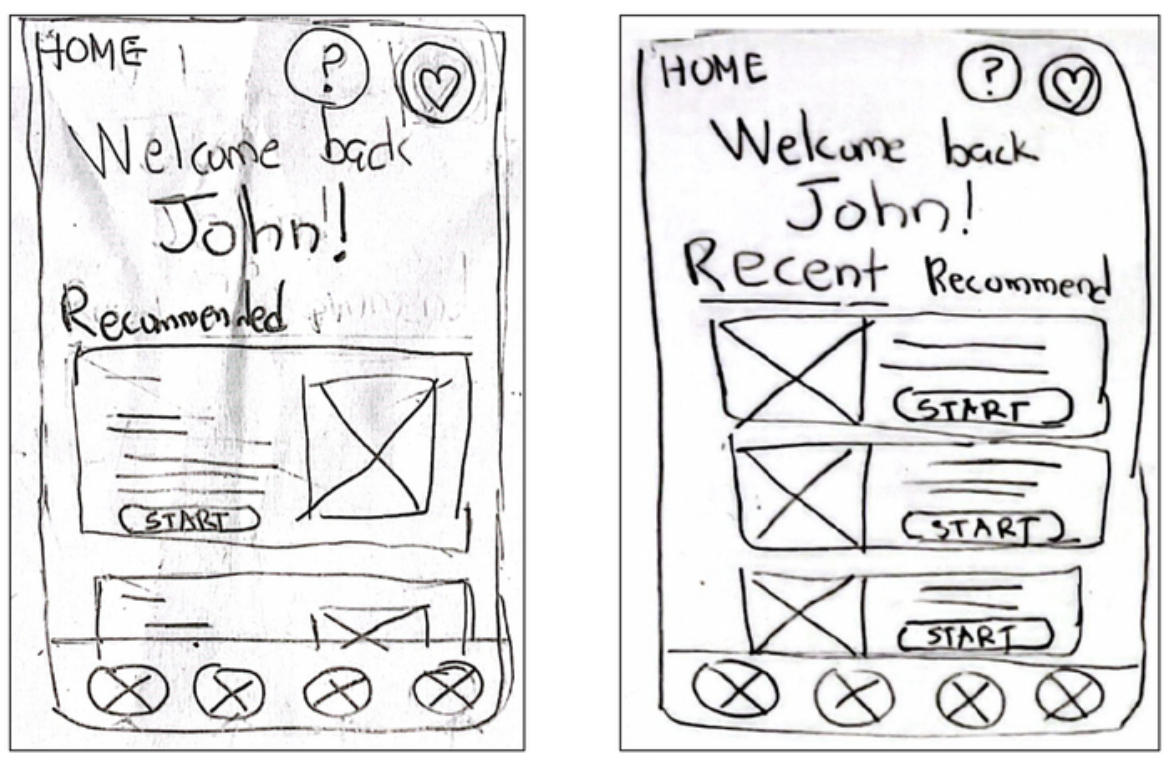 HOME
?
Welcome back
John!
Recommended
START
HOME
?
Welcome back
John!
Recent Recommend
START
START
START